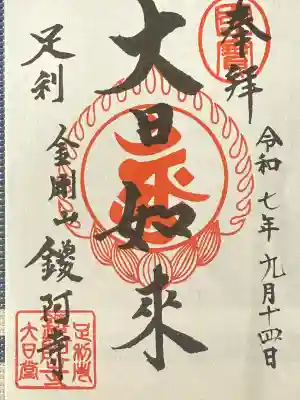 奉拝
令和七年九月十四日
大日如來
足利
金剛山 鑁阿寺
大日堂